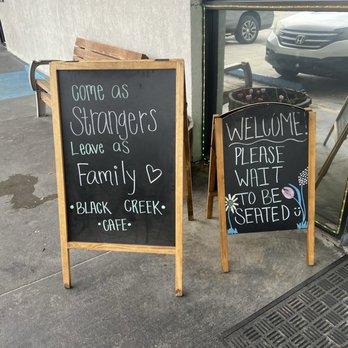 Come as
Strangers
Leave as
Family ♡
• BLACK CREEK •
• CAFE •
WELCOME!
PLEASE
WAIT
TO BE
SEATED ☺